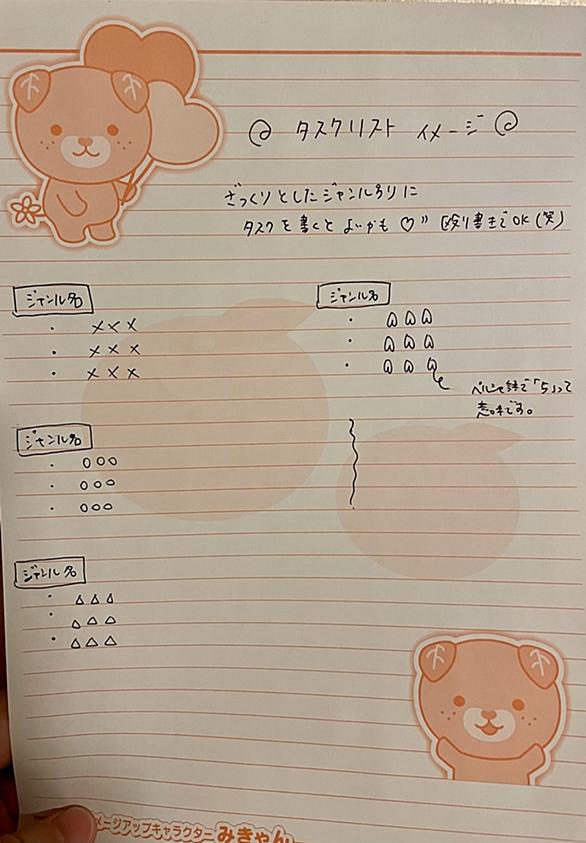 タスクリスト イメージ
ざっくりとしたジャンル別りに
タスクを書くとよいかも♡” 殴り書きでOK(笑)
ジャンル名
・ ×××
・ ×××
・ ×××
ジャンル名
・ ○○○
・ ○○○
・ ○○○
ジャンル名
・ △△△
・ △△△
・ △△△
ジャンル名
・ ۵۵۵
・ ۵۵۵
・ ۵۵۵
ペルシャ語で「5」って
意味です。
メージアップキャラクター みきゃん